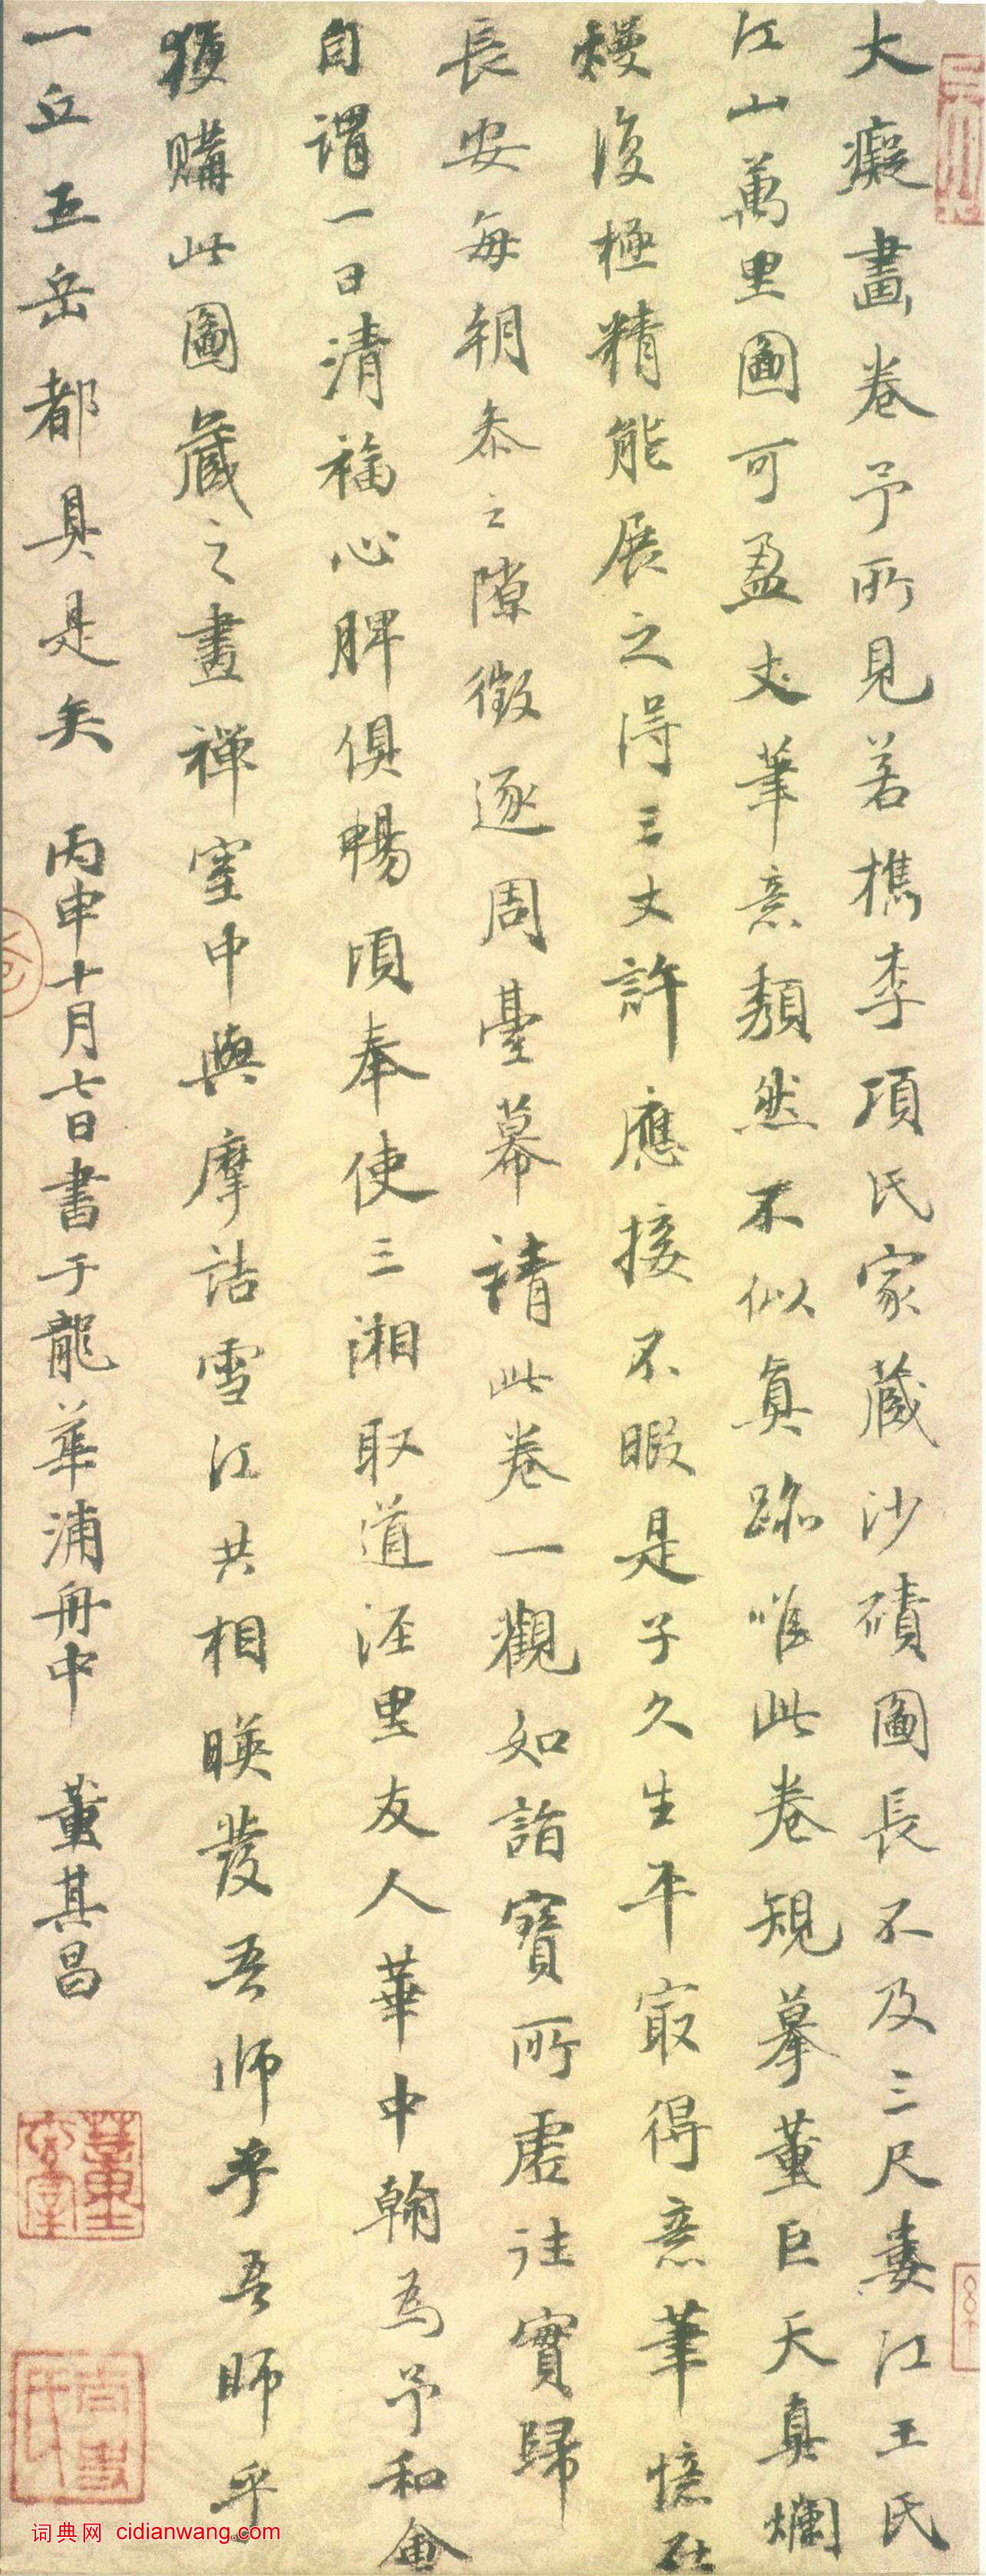 大癡畫卷予所見若檇李項氏家藏沙磧圖長不及三尺婁江王氏
江山萬里圖可盈丈筆意頹然不似真跡唯此卷規摹董巨天真爛
熳復極精能展之得三丈許應接不暇是子久生平最得意筆憶在
長安每朝參之隙徵逐周臺幕請此卷一觀如詣寶所虛往實歸
自謂一日清福心脾俱暢頃奉使三湘取道涇里友人華中翰為予和會
獲購此圖藏之畫禪室中與摩詰雪江共相暎發吾師乎吾師乎
一丘五岳都具是矣 丙申十月七日書于龍華浦舟中 董其昌
词典网 cidianwang.com